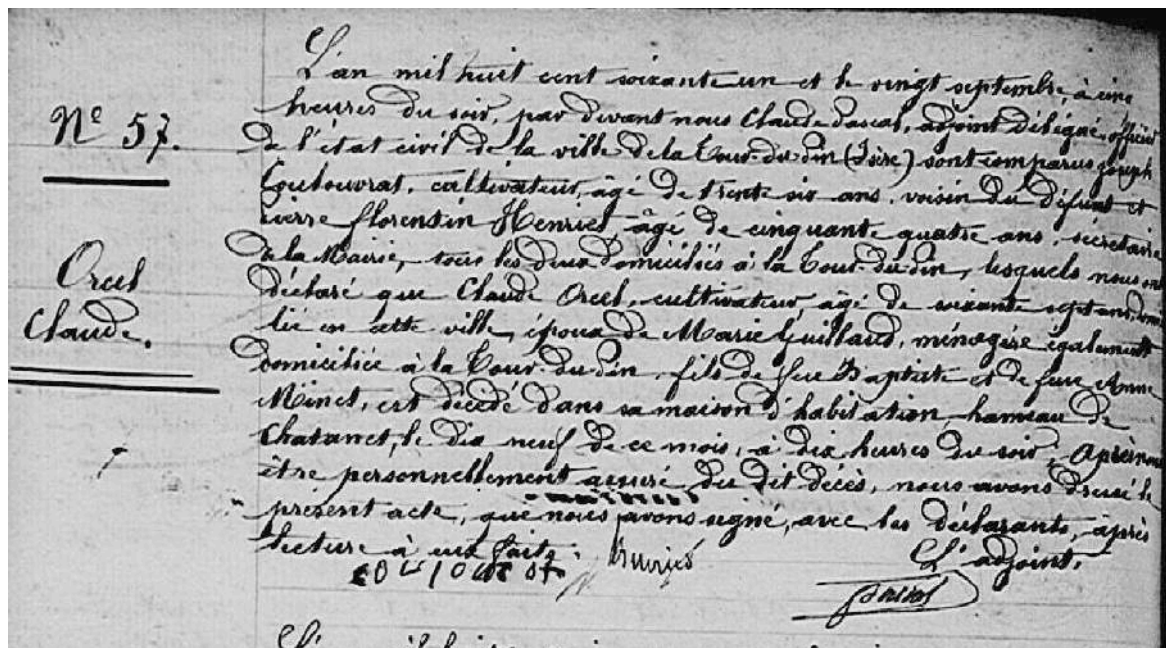 N° 57.
Orcel
Claude.
L'an mil huit cent soixante un et le vingt septembre, à cinq
heures du soir, par devant nous Claude Pascal, adjoint délégué officier
de l'état civil de la ville de la Tour-du-pin (Isère) sont comparus Joseph
Coutouvrat, cultivateur, âgé de trente six ans, voisin du défunt et
Pierre florentin Henriel âgé de cinquante quatre ans, secrétaire
de la Mairie, tous les deux domiciliés à la Tour-du-pin, lesquels nous ont
déclaré que Claude Orcel, cultivateur, âgé de soixante sept ans, domi
lié en cette ville, époux de Marie Guilland, ménagère également
domiciliée à la Tour-du-Pin, fils de feu Baptiste et de feue Anne
Minet, est décédé dans sa maison d'habitation, hameau de
Chatanet, le dix neuf de ce mois, à dix heures du soir, Après nous
être personnellement assuré du dit décès, nous avons dressé le
présent acte, que nous avons signé, avec les déclarants, après
lecture à eux faite.
L'adjoint,